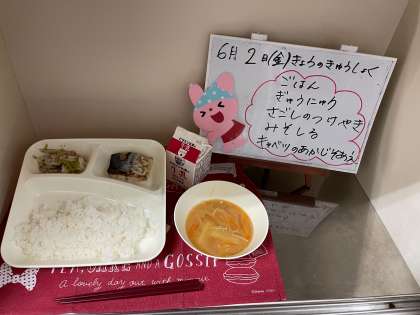 6月2日(金)きょうのきゅうしょく
ごはん
ぎゅうにゅう
さごしのつけやき
みそしる
キャベツのあかじそあえ
AND A GOSSIP
A lovely day out with